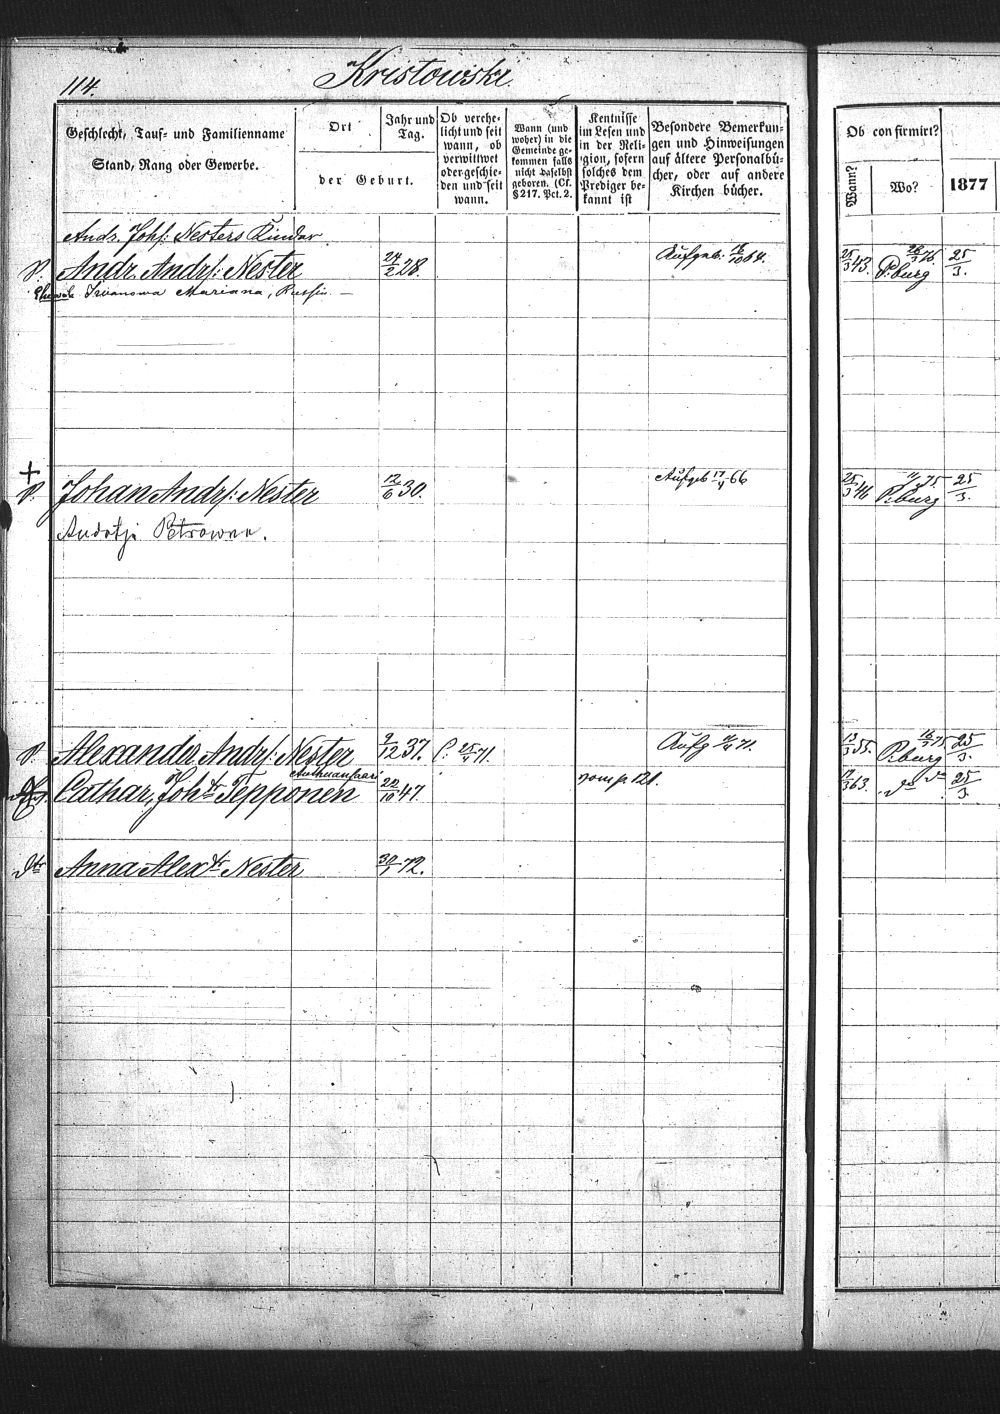 114. Kristowski.
Geschlecht, Tauf- und Familienname
Stand, Rang oder Gewerbe.
Ort
der Geburt.
Jahr und
Tag.
Ob verehe-
licht und seit
wann, ob
verwittwet
oder geschie-
den und seit
wann.
Wann (und
woher) in die
Gemeinde ge-
kommen falls
nicht daselbst
geboren. (Cf.
§ 217. Pct. 2.
Kentnisse
im Lesen und
in der Reli-
gion, sofern
solches dem
Prediger be-
kannt ist
Besondere Bemerkun-
gen und Hinweisungen
auf ältere Personalbü-
cher, oder auf andere
Kirchen bücher.
Ob confirmirt?
Wann?
Wo?
1877
Andr. Johs: Nesters Kinder
Andr. Andrs: Nester 24/2 28. 64. 25/3 43. P:burg 25/3.
Iwanowa Mariana, Russin. —
Johan Andrs: Nester 12/6 30. Aufgeb 17/4 66 P:burg 75. 25/3.
Petrowna.
Alexander Andrs: Nester 9/12 37. 25/4 71. Aufg 71. 13/3 55. P:burg 16/3 75 25/3.
Cathar, Joh:tr Tepponen 22/10 47. 63. do 25/3
dtr Anna Alex:tr Nester 30/1 72.